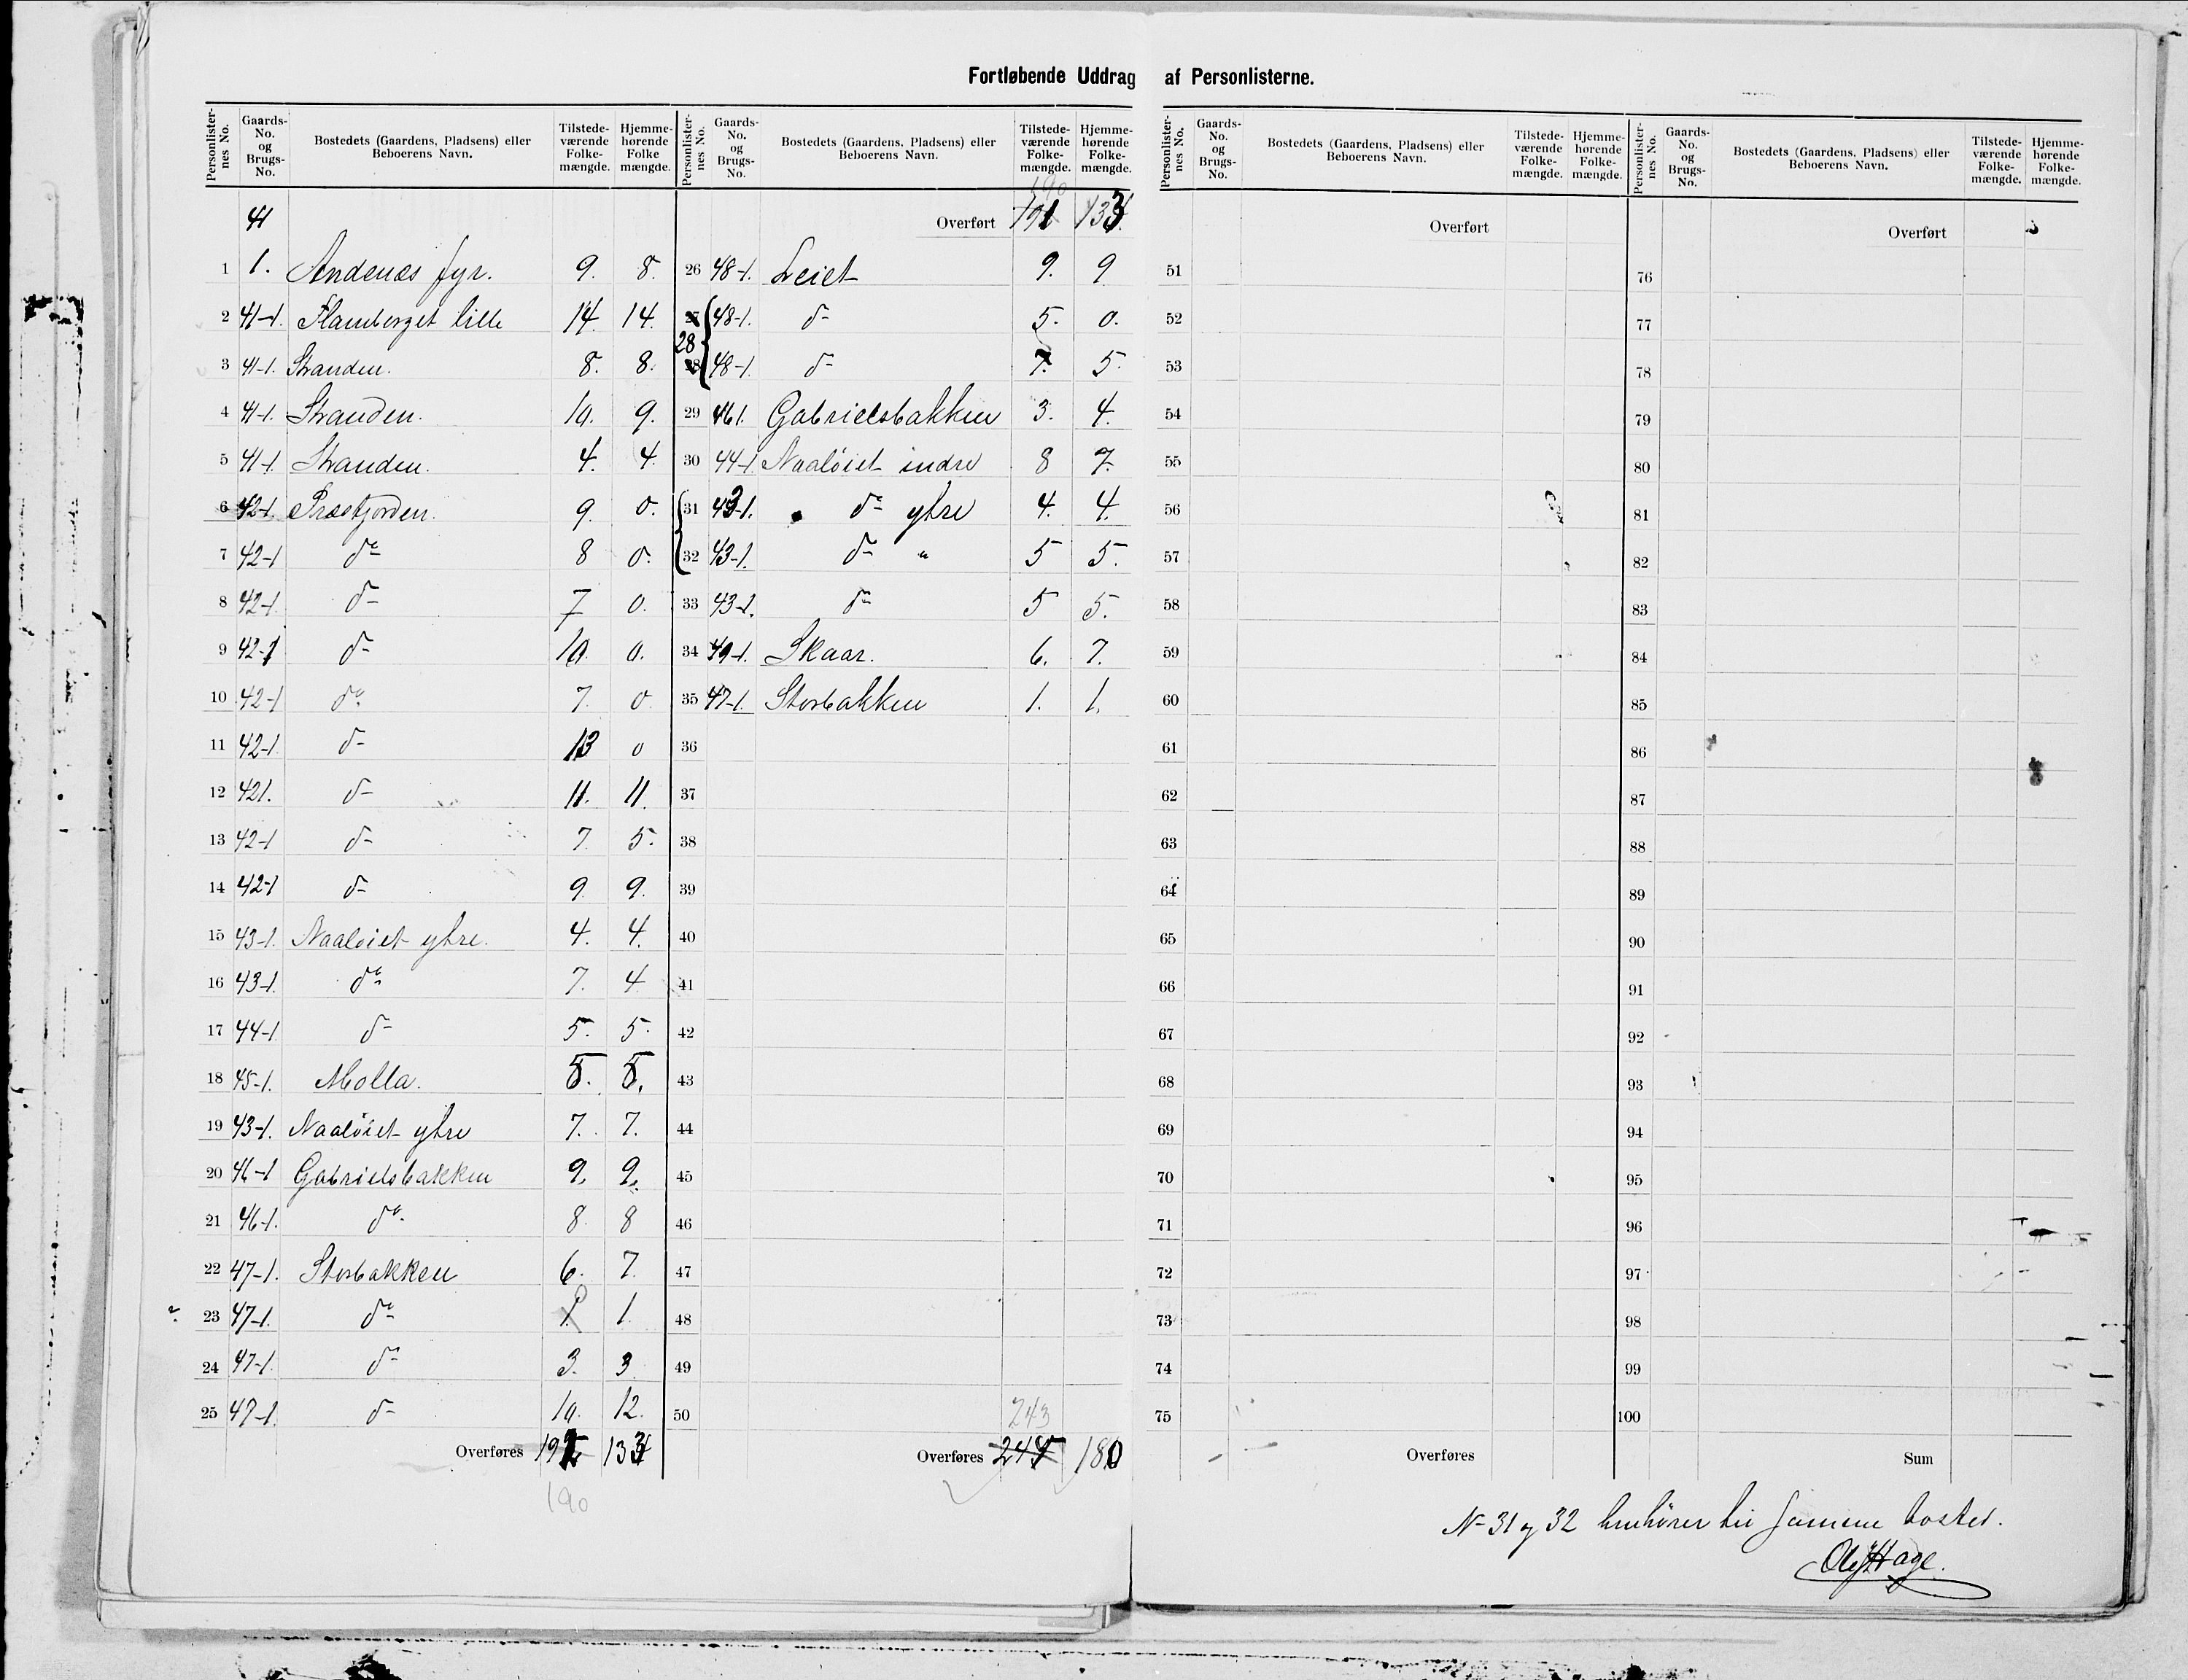 Fortløbende Uddrag af Personlisterne.
Personlister-nes No. Gaards-No. og Brugs-No. Bostedets (Gaardens, Pladsens) eller Beboerens Navn. Tilstede-værende Folke-mængde. Hjemme-hørende Folke-mængde.
41
1 1. Andenæs fyr. 9. 8.
2 41-1. Flamberget lille 14. 14.
3 41-1. Stranden. 8. 8.
4 41-1. Stranden. 10. 9.
5 41-1 Stranden. 4. 4.
6 42-1. Præstjorden. 9. 0.
7 42-1 do 8 0.
8 42-1. do 7 0.
9 42-1 do 10. 0.
10 42-1 do 7 0
11 42-1. do 13 0
12 421. do 11. 11.
13 42-1 do 7 5.
14 42-1 do 9 9.
15 43-1. Naaløiet ytre. 4. 4.
16 43-1. do 7. 4
17 44-1 do 5. 5.
18 45-1. Molla. 5. 5.
19 43-1. Naaløiet ytre 7. 7.
20 46-1 Gabrielsbakken 9. 9.
21 46-1. do 8. 8
22 47-1. Storbakken 6. 7.
23 47-1. do 1. 0 1.
24 47-1. do 3. 3
25 47-1. do 10. 12.
Overføres 133
190
Personlister-nes No. Gaards-No. og Brugs-No. Bostedets (Gaardens, Pladsens) eller Beboerens Navn. Tilstede-værende Folke-mængde. Hjemme-hørende Folke-mængde.
190
Overført 191 133
26 48-1. Leiet 9. 9
27 48-1. do 5. 0.
28
28 48-1 do 7. 5.
29 461. Gabrielsbakken 3. 4.
30 44-1 Naaløiet indre 8 7.
31 43-1. do ytre 4. 4.
32 43-1. do " 5 5.
33 43-1. do 5 5.
34 49-1. Skaar. 6. 7.
35 47-1. Storbakken 1. 1.
36
37
38
39
40
41
42
43
44
45
46
47
48
49
50 243
Overføres 180
Personlister-nes No. Gaards-No. og Brugs-No. Bostedets (Gaardens, Pladsens) eller Beboerens Navn. Tilstede-værende Folke-mængde. Hjemme-hørende Folke-mængde.
Overført
51
52
53
54
55
56
57
58
59
60
61
62
63
64
65
66
67
68
69
70
71
72
73
74
75
Overføres
Personlister-nes No. Gaards-No. og Brugs-No. Bostedets (Gaardens, Pladsens) eller Beboerens Navn. Tilstede-værende Folke-mængde. Hjemme-hørende Folke-mængde.
Overført
76
77
78
79
80
81
82
83
84
85
86
87
88
89
90
91
92
93
94
95
96
97
98
99
100
Sum
N- 31 og 32 henhører til samme bosted.